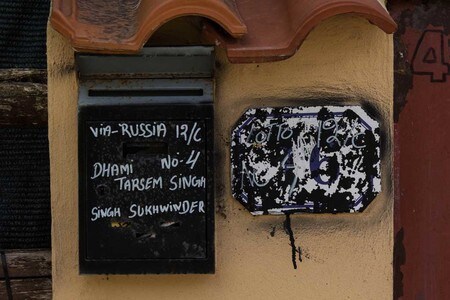 VIA-RUSSIA 12/C
DHAMI NO·4
TARSEM SINGH
SINGH SUKHWINDER
4